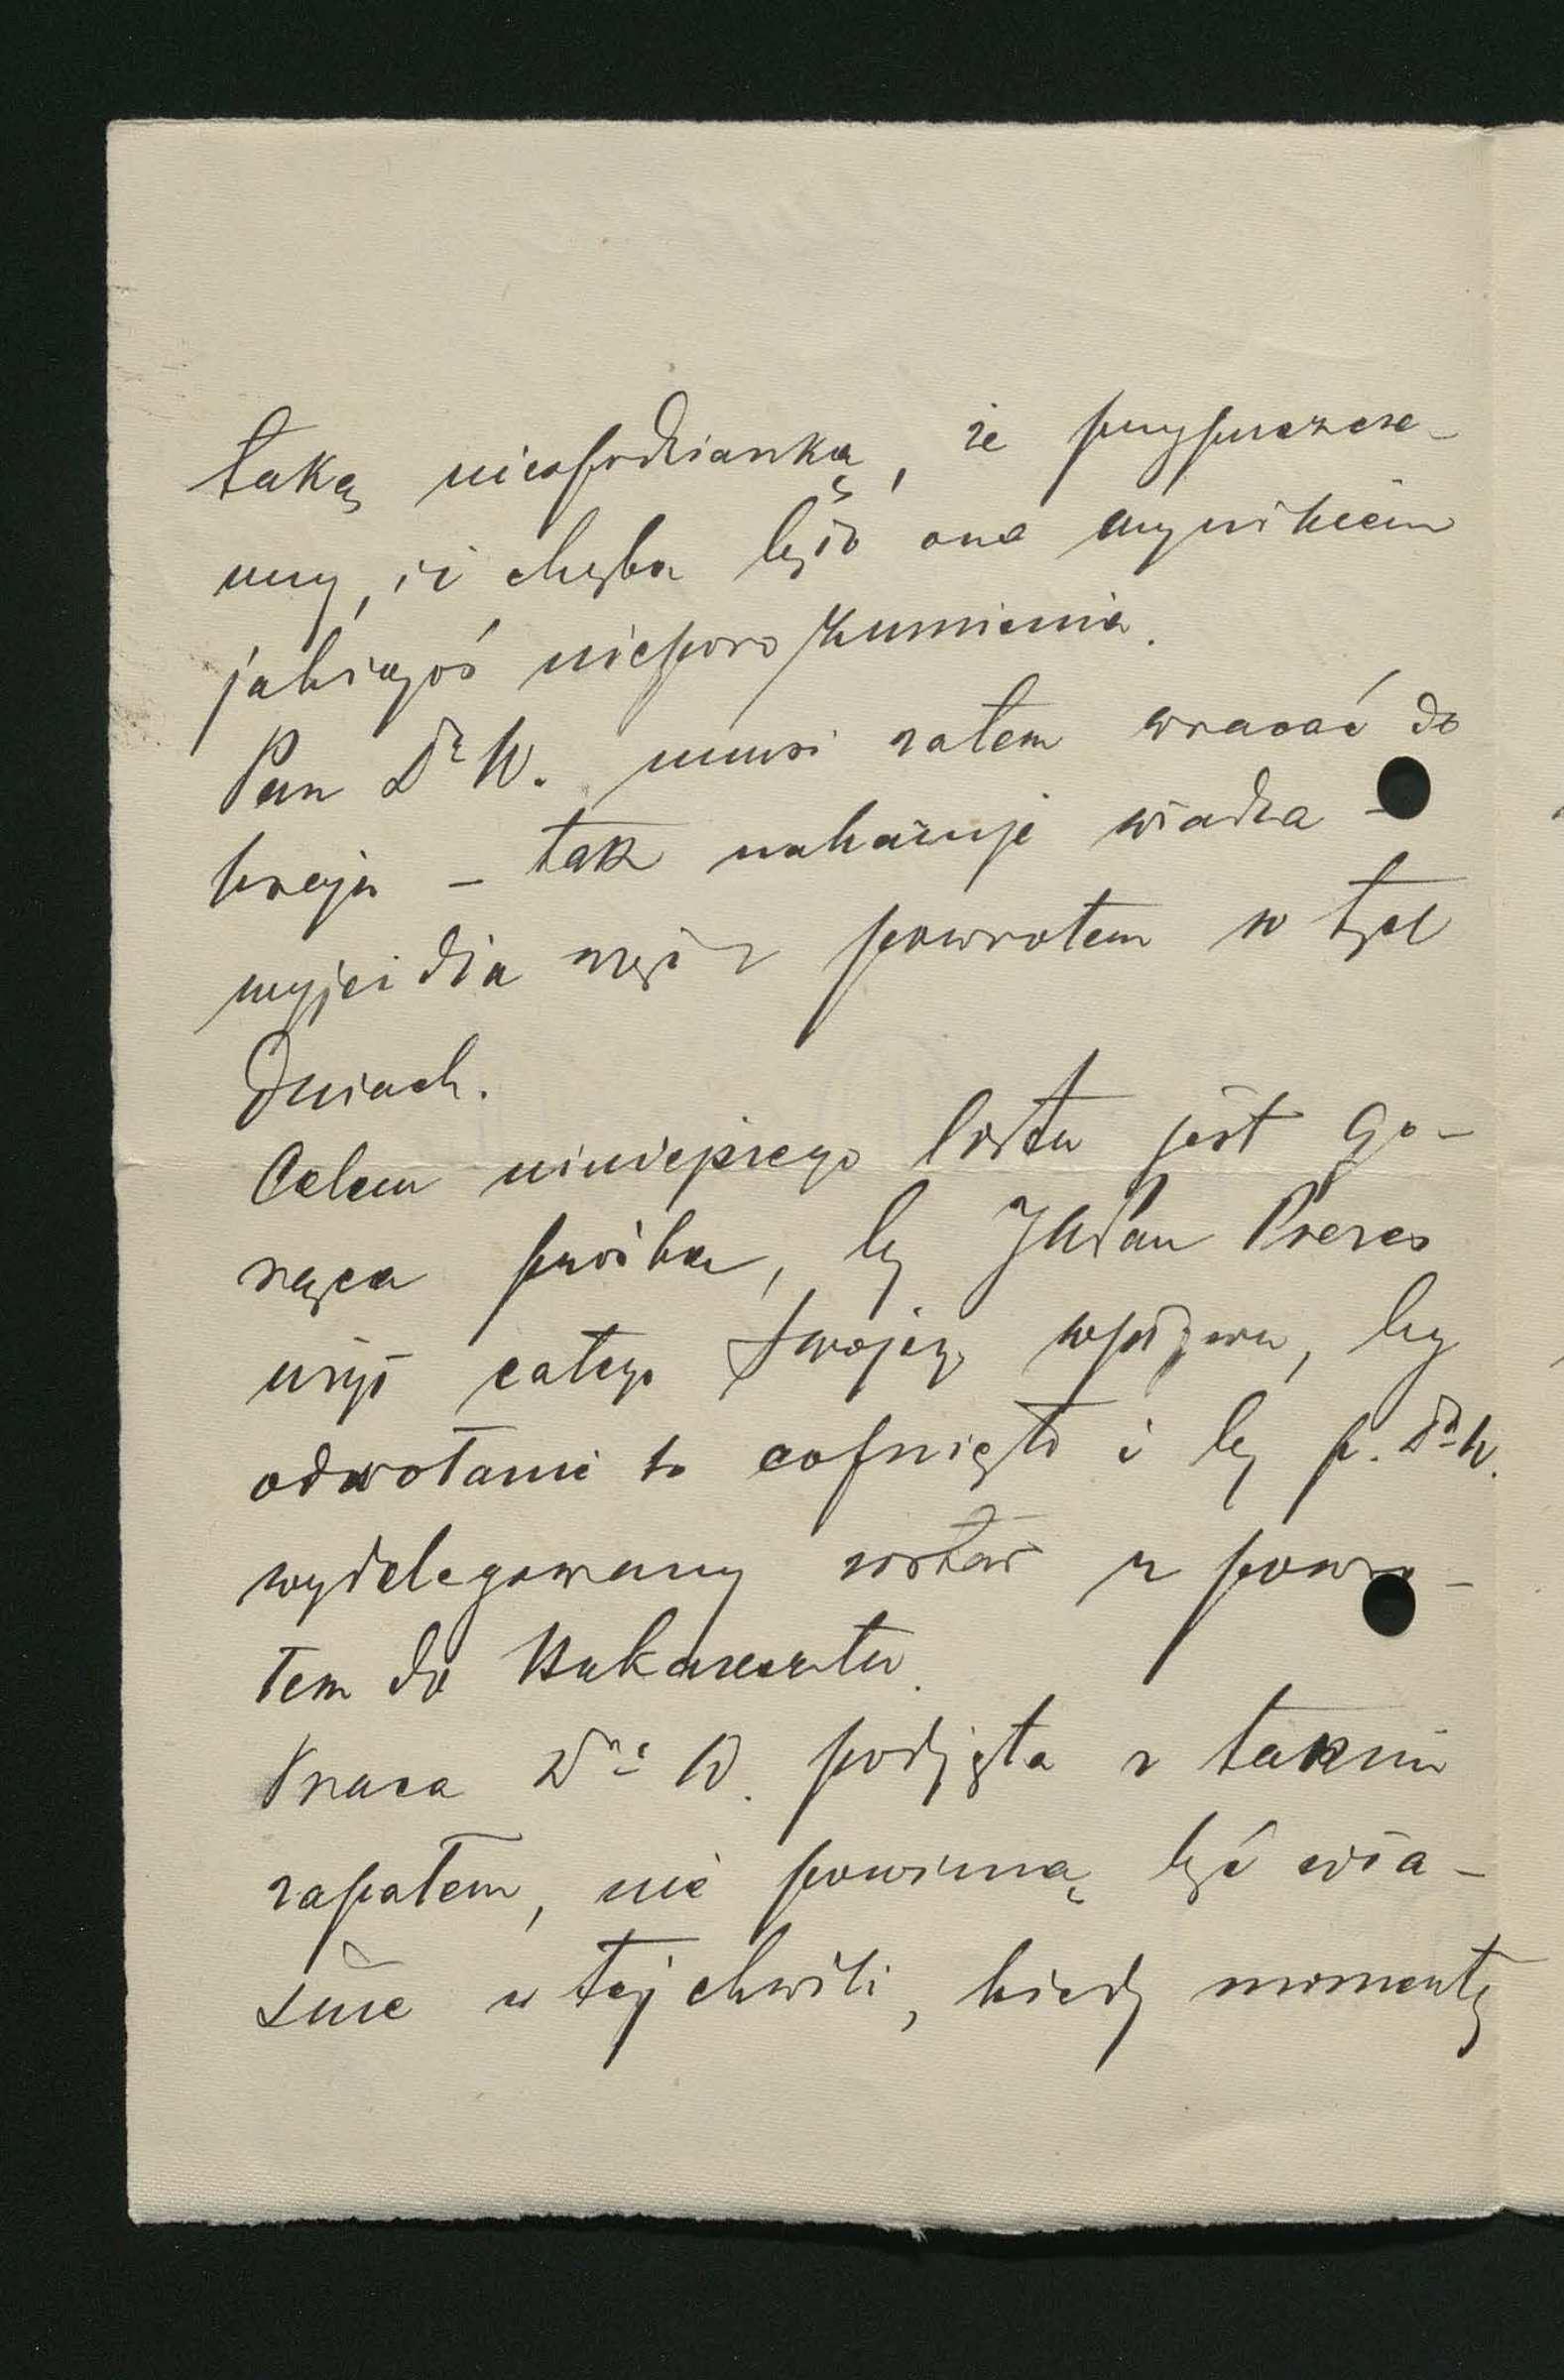 taką niespodzianką, że przypuszcza-
my, iż chyba było one wynikiem
jakiegoś nieporozumienia.
Pan Dr W. musi zatem wracać do
kraju – tak nakazuje władza –
wyjeżdża więc z powrotem w tych
dniach.
Celem niniejszego listu jest go-
rąca prośba, by JWPan Prezes
użył całego swojego wpływu, by
odwołanie to cofnięto i by p. Dr W.
wydelegowany został z powro-
tem do Bukaresztu.
Praca Dra W. podjęta z takim
zapałem, nie powinną być wła-
śnie w tej chwili, kiedy momenty